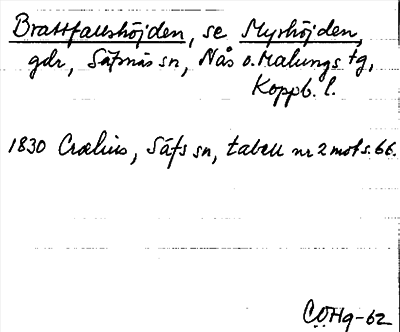 Brattfallshöjden, se Myrhöjden,
gdr, Säfsnäs sn, Nås o. Malungs tg,
Koppb. l.
1830 Crælius, Säfs sn, tabell nr 2 mot s. 66.
COHg-62